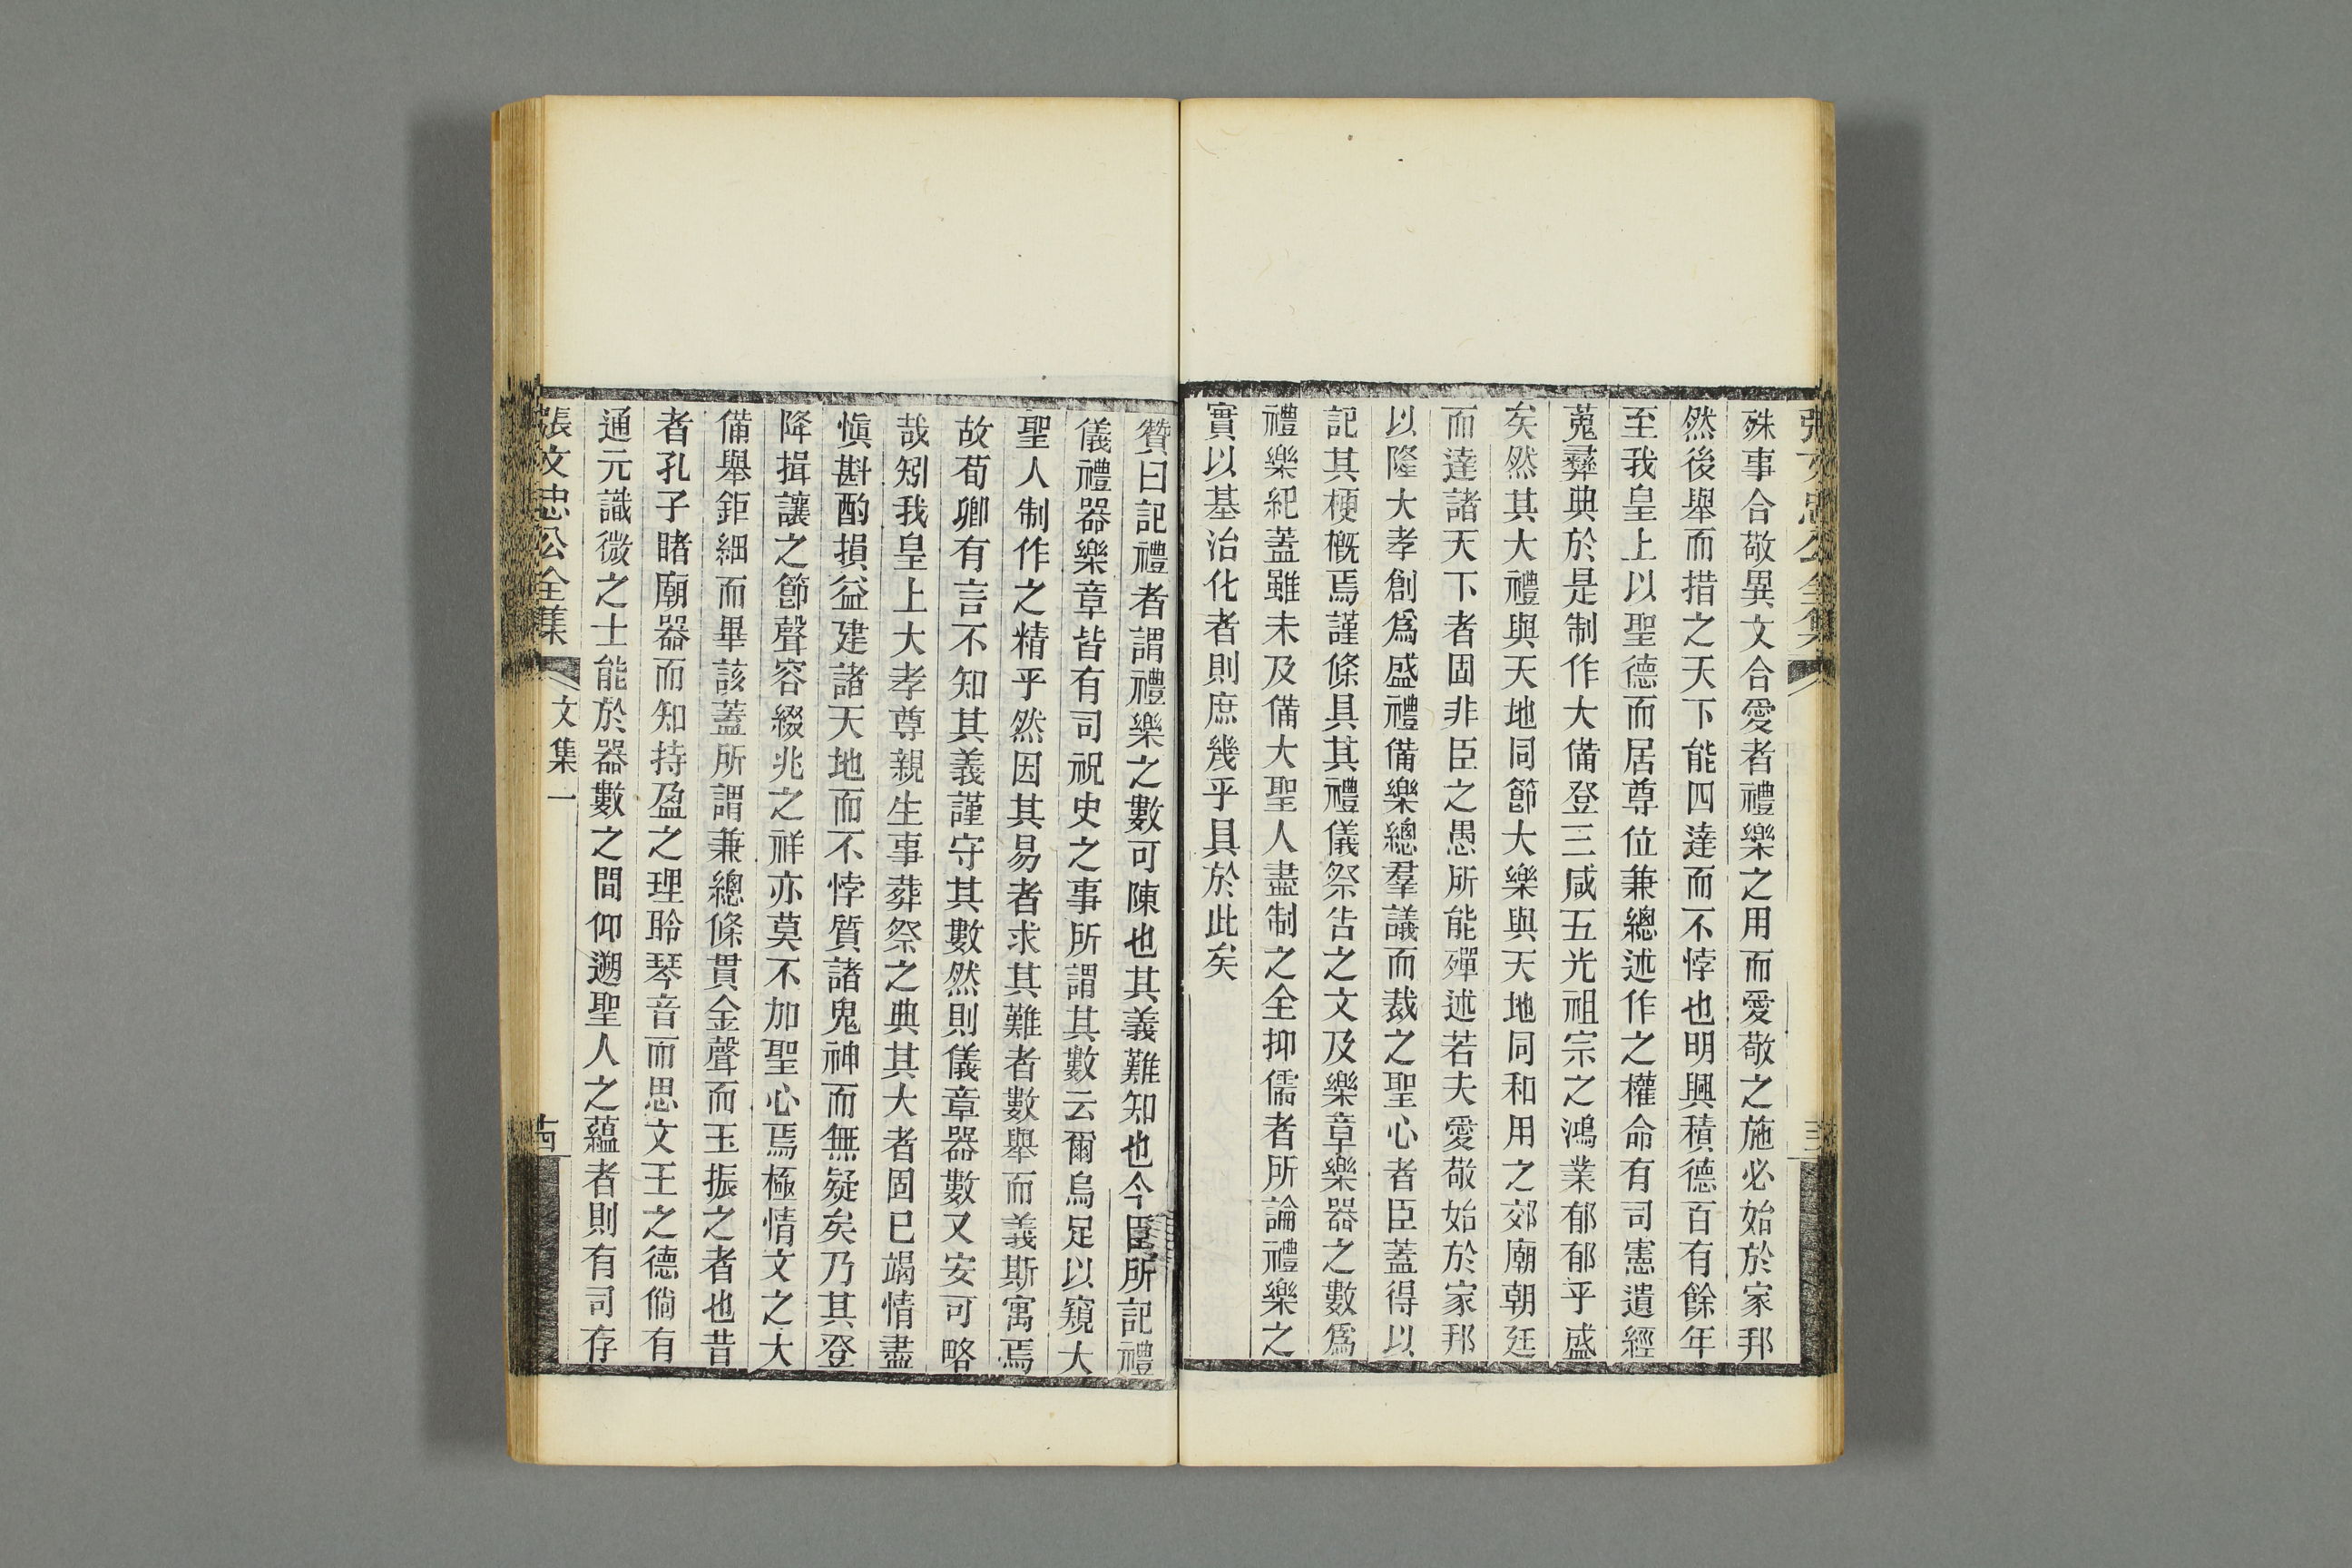 張文忠公全集
殊事合敬異文合愛者禮樂之用而愛敬之施必始於家邦
然後舉而措之天下能四達而不悖也明興積德百有餘年
至我皇上以聖德而居尊位兼總述作之權命有司憲遺經
蒐彞典於是制作大備登三咸五光祖宗之鴻業郁郁乎盛
矣然其大禮與天地同節大樂與天地同和用之郊廟朝廷
而達諸天下者固非臣之愚所能殫述若夫愛敬始於家邦
以隆大孝創爲盛禮備樂總羣議而裁之聖心者臣蓋得以
記其梗槪焉謹條具其禮儀祭告之文及樂章樂器之數爲
禮樂紀蓋雖未及備大聖人盡制之全抑儒者所論禮樂之
實以基治化者則庶幾乎具於此矣
贊曰記禮者謂禮樂之數可陳也其義難知也今臣所記禮
儀禮器樂章皆有司祝史之事所謂其數云爾烏足以窺大
聖人制作之精乎然因其易者求其難者數舉而義斯寓焉
故荀卿有言不知其義謹守其數然則儀章器數又安可略
哉矧我皇上大孝尊親生事葬祭之典其大者固已竭情盡
愼斟酌損益建諸天地而不悖質諸鬼神而無疑矣乃其登
降揖讓之節聲容綴兆之祥亦莫不加聖心焉極情文之大
備舉鉅細而畢該蓋所謂兼總條貫金聲而玉振之者也昔
者孔子睹廟器而知持盈之理聆琴音而思文王之德倘有
通元識微之士能於器數之間仰遡聖人之蘊者則有司存
張文忠公全集 文集一 十四